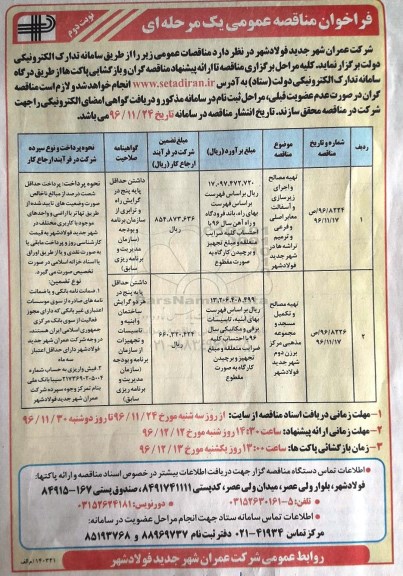 فراخوان مناقصه عمومی یک مرحله ای
نوبت دوم
شرکت عمران شهر جدید فولادشهر در نظر دارد مناقصات عمومی زیر را از طریق سامانه تدارک الکترونیکی
دولت برگزار نماید. کلیه مراحل برگزاری مناقصه تا ارائه پیشنهاد مناقصه گران و بازگشایی پاکت ها از طریق درگاه
سامانه تدارک الکترونیکی دولت (ستاد) به آدرس www.setadiran.ir انجام خواهد شد و لازم است مناقصه
گران در صورت عدم عضویت قبلی، مراحل ثبت نام در سامانه مذکور و دریافت گواهی امضای الکترونیکی را جهت
شرکت در مناقصه محقق سازند. تاریخ انتشار مناقصه در سامانه تاریخ ۹۶/۱۱/۲۴ می باشد.
ردیف
شماره و تاریخ مناقصه
موضوع مناقصه
مبلغ برآورد (ریال)
مبلغ تضمین شرکت در فرآیند ارجاع کار (ریال)
گواهینامه صلاحیت
نحوه پرداخت و نوع سپرده شرکت در فرآیند ارجاع کار
۱
۹۶/۸۲۲۴/ص
۹۶/۱۱/۱۷
تهیه مصالح و اجرای زیرسازی و آسفالت معابر اصلی و فرعی و ترمیم ترانشه ها در شهر جدید فولادشهر
۱۷,۰۹۷,۴۷۲,۷۲۰ ریال بر اساس فهرست بهای راه، باند فرودگاه و راه آهن سال ۹۶ با احتساب کلیه ضرایب متعلقه و مبلغ تجهیز و برچیدن کارگاه به صورت مقطوع
۸۵۴,۸۷۳,۶۳۶ ریال
داشتن حداقل پایه پنج در گرایش راه و ترابری از سازمان برنامه و بودجه (سازمان مدیریت و برنامه ریزی سابق)
نحوه پرداخت: پرداخت حداقل شصت درصد از مبالغ خالص صورت وضعیت های تایید شده از طریق تهاتر با اراضی و واحدهای موجود با کاربری مختلف در شهر جدید فولادشهر به قیمت کارشناسی روز و پرداخت مابقی یا به صورت نقدی و یا از طریق اوراق یا اسناد خزانه اسلامی در صورت تخصیص صورت می گیرد.
نوع تضمین:
۱. ضمانت نامه بانکی و یا ضمانت نامه های صادر از سوی موسسات اعتباری غیر بانکی که دارای مجوز فعالیت از سوی بانک مرکزی جمهوری اسلامی ایران هستند، در وجه شرکت عمران شهر جدید فولادشهر دارای حداقل اعتبار سه ماه
۲
۹۶/۸۲۲۶/ص
۹۶/۱۱/۱۷
تهیه مصالح و تکمیل مسجد و مجموعه مذهبی مرکز برزن دوم شهر جدید فولادشهر
ریال بر اساس فهرست بهای ابنیه، تاسیسات برقی و مکانیکی سال ۹۶ با احتساب کلیه ضرایب متعلقه و مبلغ تجهیز و برچیدن کارگاه به صورت مقطوع
۶۶۰,۳۲۰,۴۲۴ ریال
داشتن حداقل پایه پنج در دو گرایش ساختمان و ابنیه و تاسیسات و تجهیزات از سازمان برنامه و بودجه (سازمان مدیریت و برنامه ریزی سابق)
۱- مهلت زمانی دریافت اسناد مناقصه از سایت: از روز سه شنبه مورخ ۹۶/۱۱/۲۴ تا روز دوشنبه مورخ ۹۶/۱۱/۳۰
۲- مهلت زمانی ارائه پیشنهاد: ساعت ۱۴:۳۰ روز شنبه مورخ ۹۶/۱۲/۱۲
۳- زمان بازگشایی پاکت ها: ساعت ۱۳:۰۰ روز یکشنبه مورخ ۹۶/۱۲/۱۳
● اطلاعات تماس دستگاه مناقصه گزار جهت دریافت اطلاعات بیشتر در خصوص اسناد مناقصه و ارائه پاکتها:
فولادشهر، بلوار ولی عصر، میدان ولی عصر، کدپستی ۸۴۹۱۷۴۱۱۱۱، صندوق پستی ۱۶۷-۸۴۹۱۵
● تلفن: ۵-۰۳۱۵۲۶۳۰۱۶۱ ● دورنویس: ۰۳۱۵۲۶۲۴۱۸۱
● اطلاعات تماس سامانه ستاد جهت انجام مراحل عضویت در سامانه:
مرکز تماس ۴۱۹۳۴-۰۲۱ دفتر ثبت نام ۸۸۹۶۹۷۳۷ و ۸۵۱۹۳۷۶۸
روابط عمومی شرکت عمران شهر جدید فولادشهر